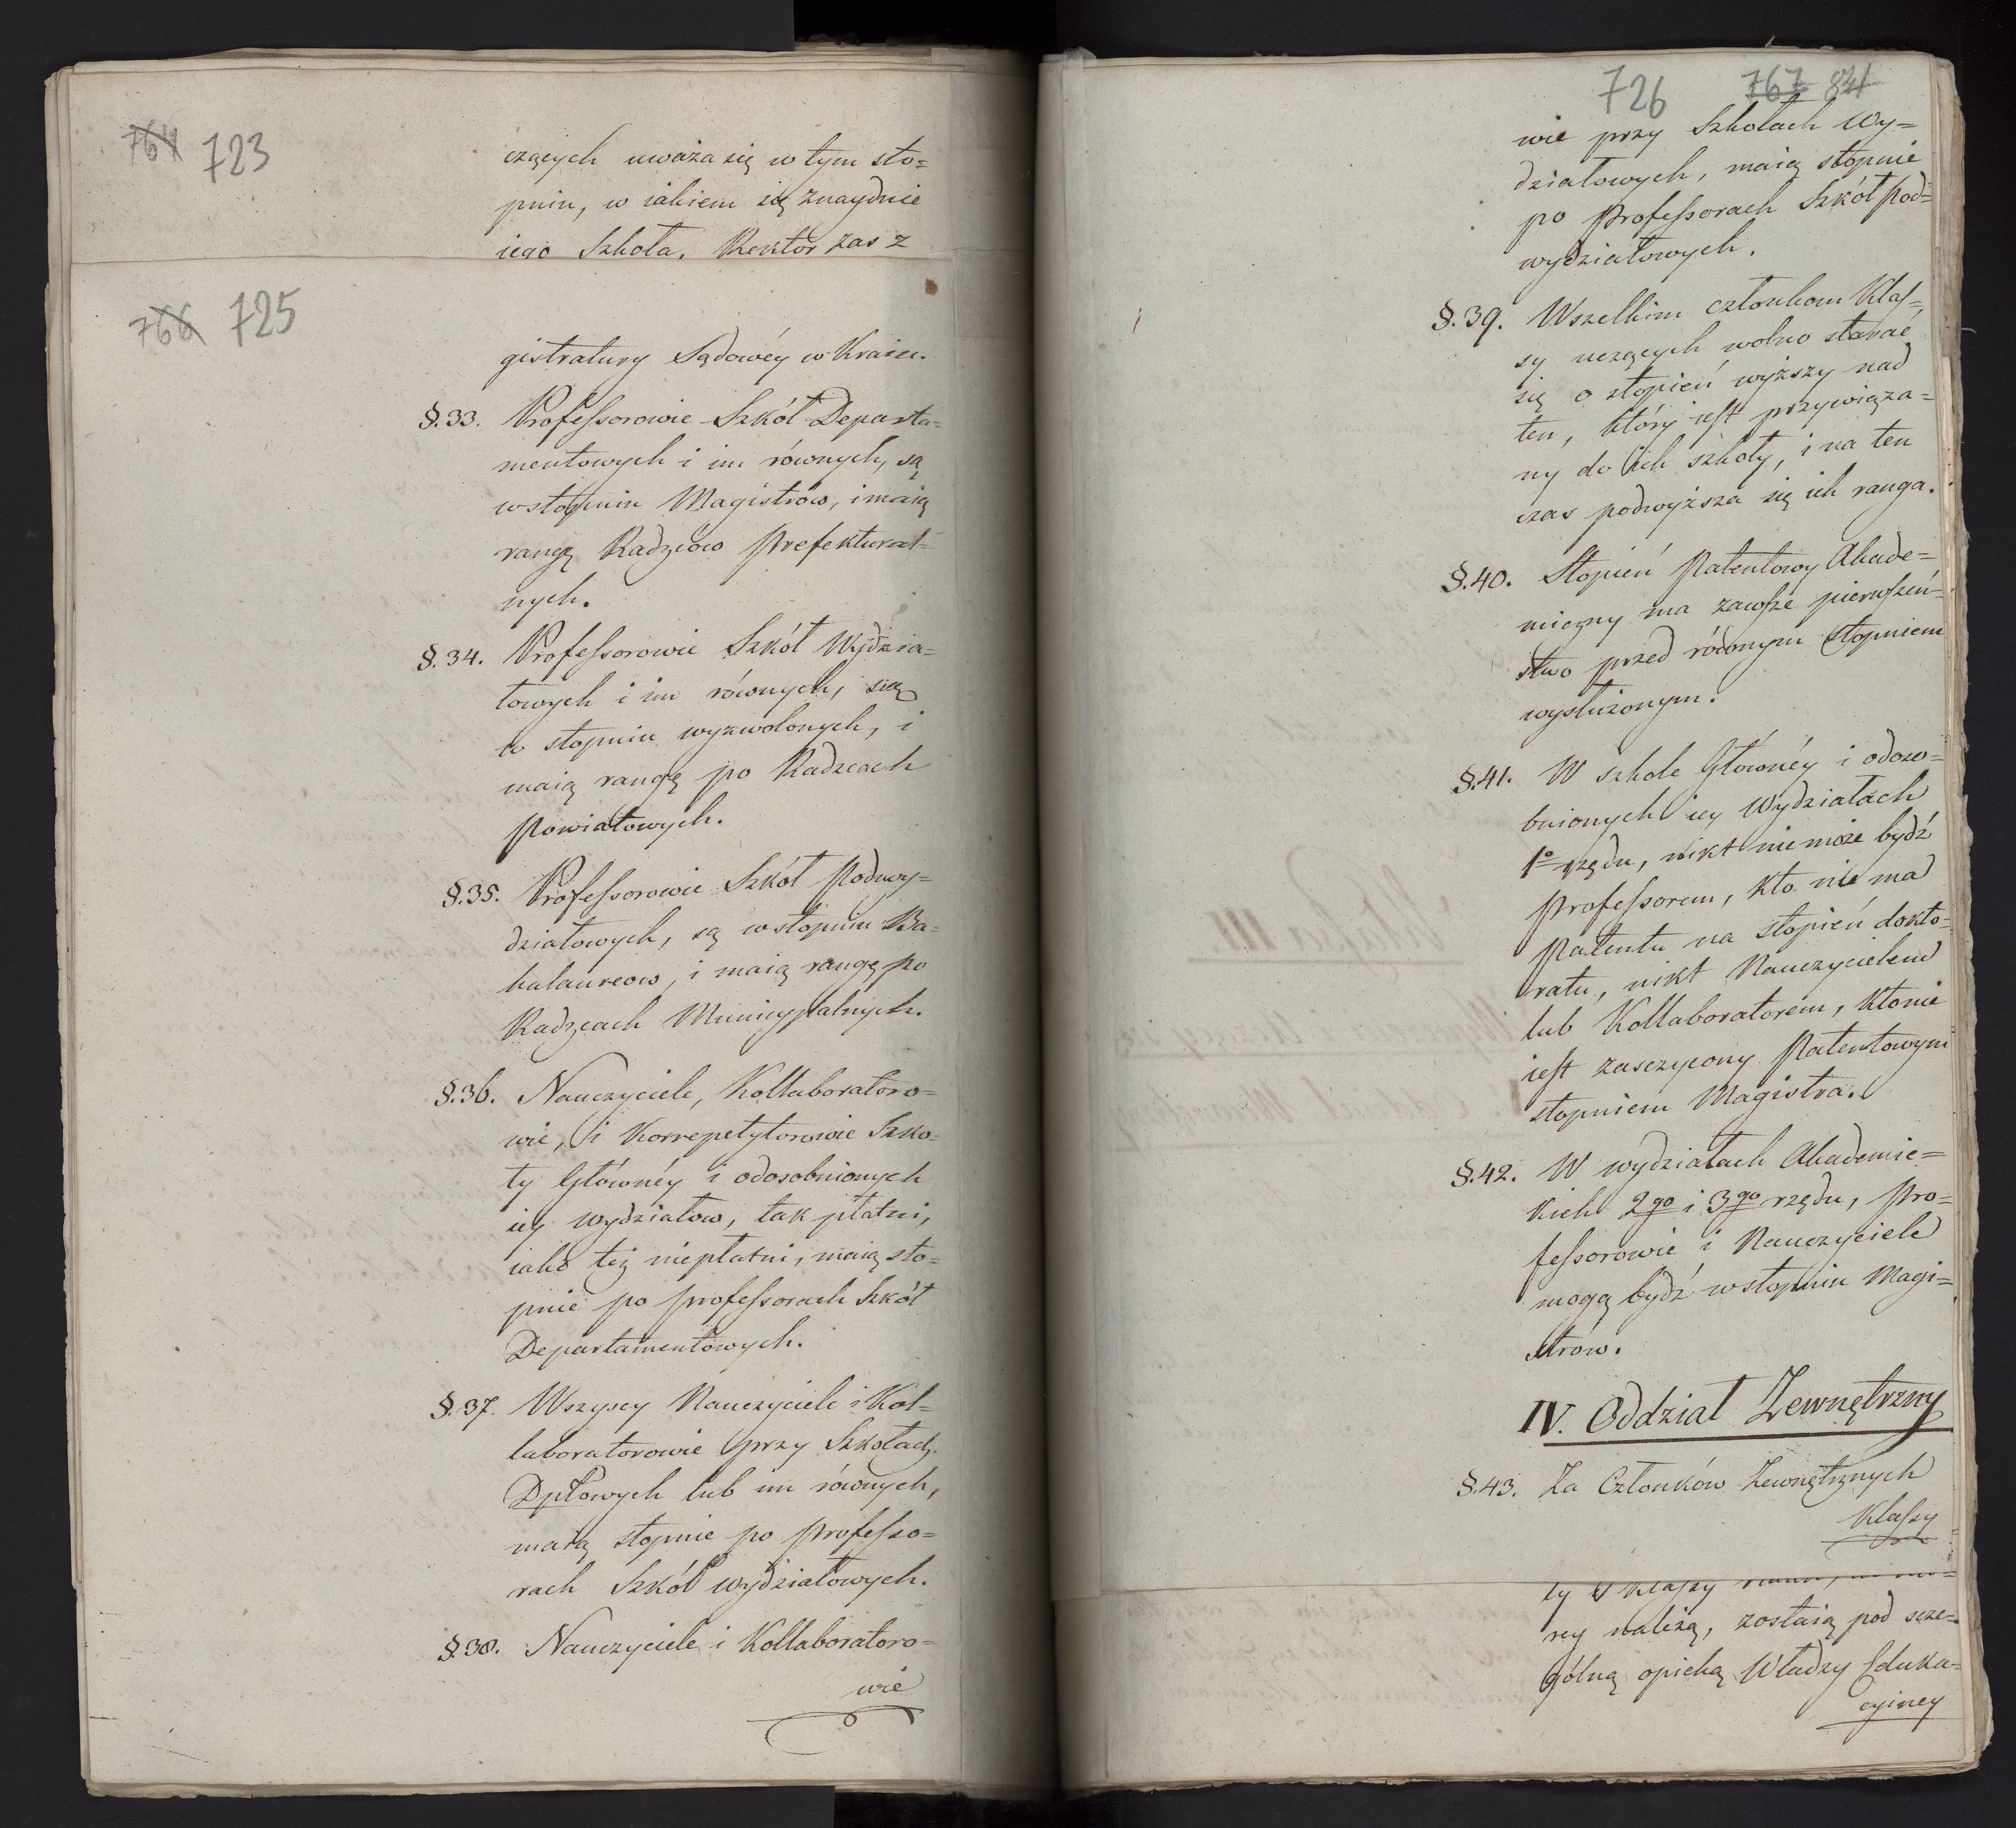 764 723
czących uważa się w tym sto=
pniu, w iakiem się znayduie
iego Szkoła. Rektor zas z
766 725
gistratury Sądowéy w Kraiu.
§. 33. Professorowie Szkół Departa=
mentowych i im równych, są
w stopniu Magistrów, i maią
rangę Radzców Prefektural=
nych.
§. 34. Professorowie Szkół Wydzia=
łowych i im równych, są
w stopniu wyzwolonych, i
maią rangę po Radzcach
Powiatowych.
§. 35. Professorowie Szkół Podwy=
działowych, są w stopniu Ba=
kalaureow, i maią rangę po
Radzcach Municypalnych.
§. 36. Nauczyciele, Kollaboratoro=
wie, i Korrepetytorowie Szko=
ły Głównéy i odosobnionych
iey wydziałow, tak płatni,
iako też niepłatni, maią sto=
pnie po professorach Szkół
Departamentowych.
§. 37. Wszyscy Nauczyciele i Kol=
laboratorowie przy Szkołach
Dptowych lub im równych,
maią stopnie po professo=
rach Szkół wydziałowych.
§. 38. Nauczyciele i Kollaboratoro=
wie
726 767 84
wie przy Szkołach Wy=
działowych, maią stopnie
po Professorach Szkół Pod=
wydziałowych.
§. 39. Wszelkim członkom Klas=
sy uczących wolno starać
się o stopień wyższy nad
ten, który iest przywiąza=
ny do ich szkoły, i na ten
czas podwyższa się ich ranga.
§. 40. Stopień Patentowy Akade=
miczny ma zawsze pierwszeń=
stwo przed równym stopniem
wysłużonym.
§. 41. W szkole Głównéy i odoso=
bnionych iey Wydziałach
1º rzędu, nikt nie może bydź
Professorem, kto nie ma
Patentu na stopień dokto=
ratu, nikt Nauczycielem
lub Kollaboratorem, kto nie
iest zasczycony Patentowym
stopniem Magistra.
§. 42. W wydziałach Akademic=
kich 2go i 3go rzędu, Pro=
fessorowie i Nauczyciele
mogą bydź w stopniu Magi=
strów.
IV. Oddział Zewnętrzny
§. 43. Za Członków Zewnętrznych
Klassy
rey należą, zostaią pod scze=
gólną opieką Władzy Eduka=
cyiney